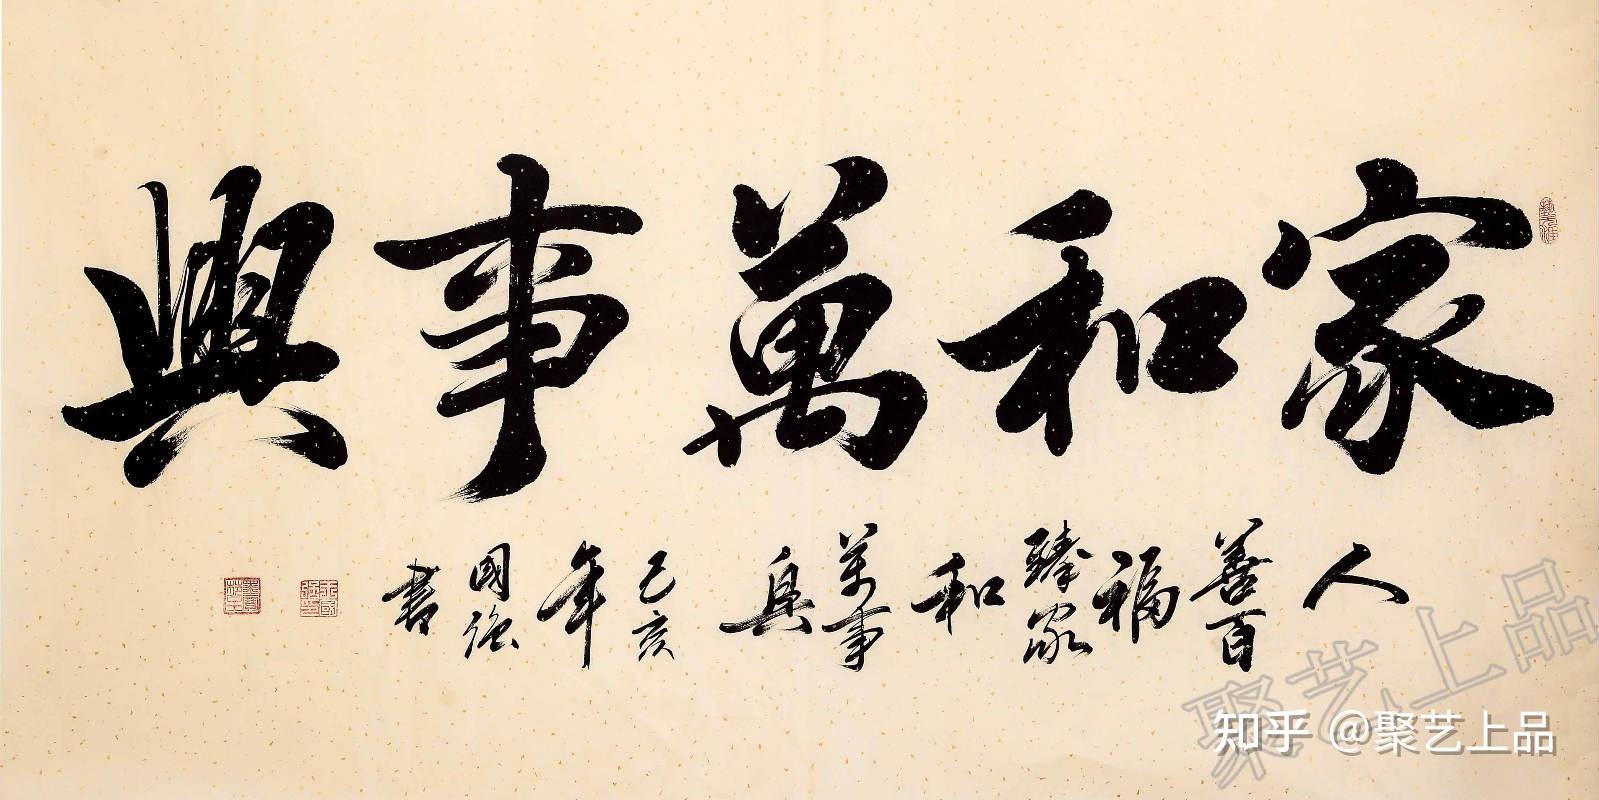 家和萬事興
人善百福臻家和萬事興己亥年國強書
知乎 @聚艺上品
聚艺上品